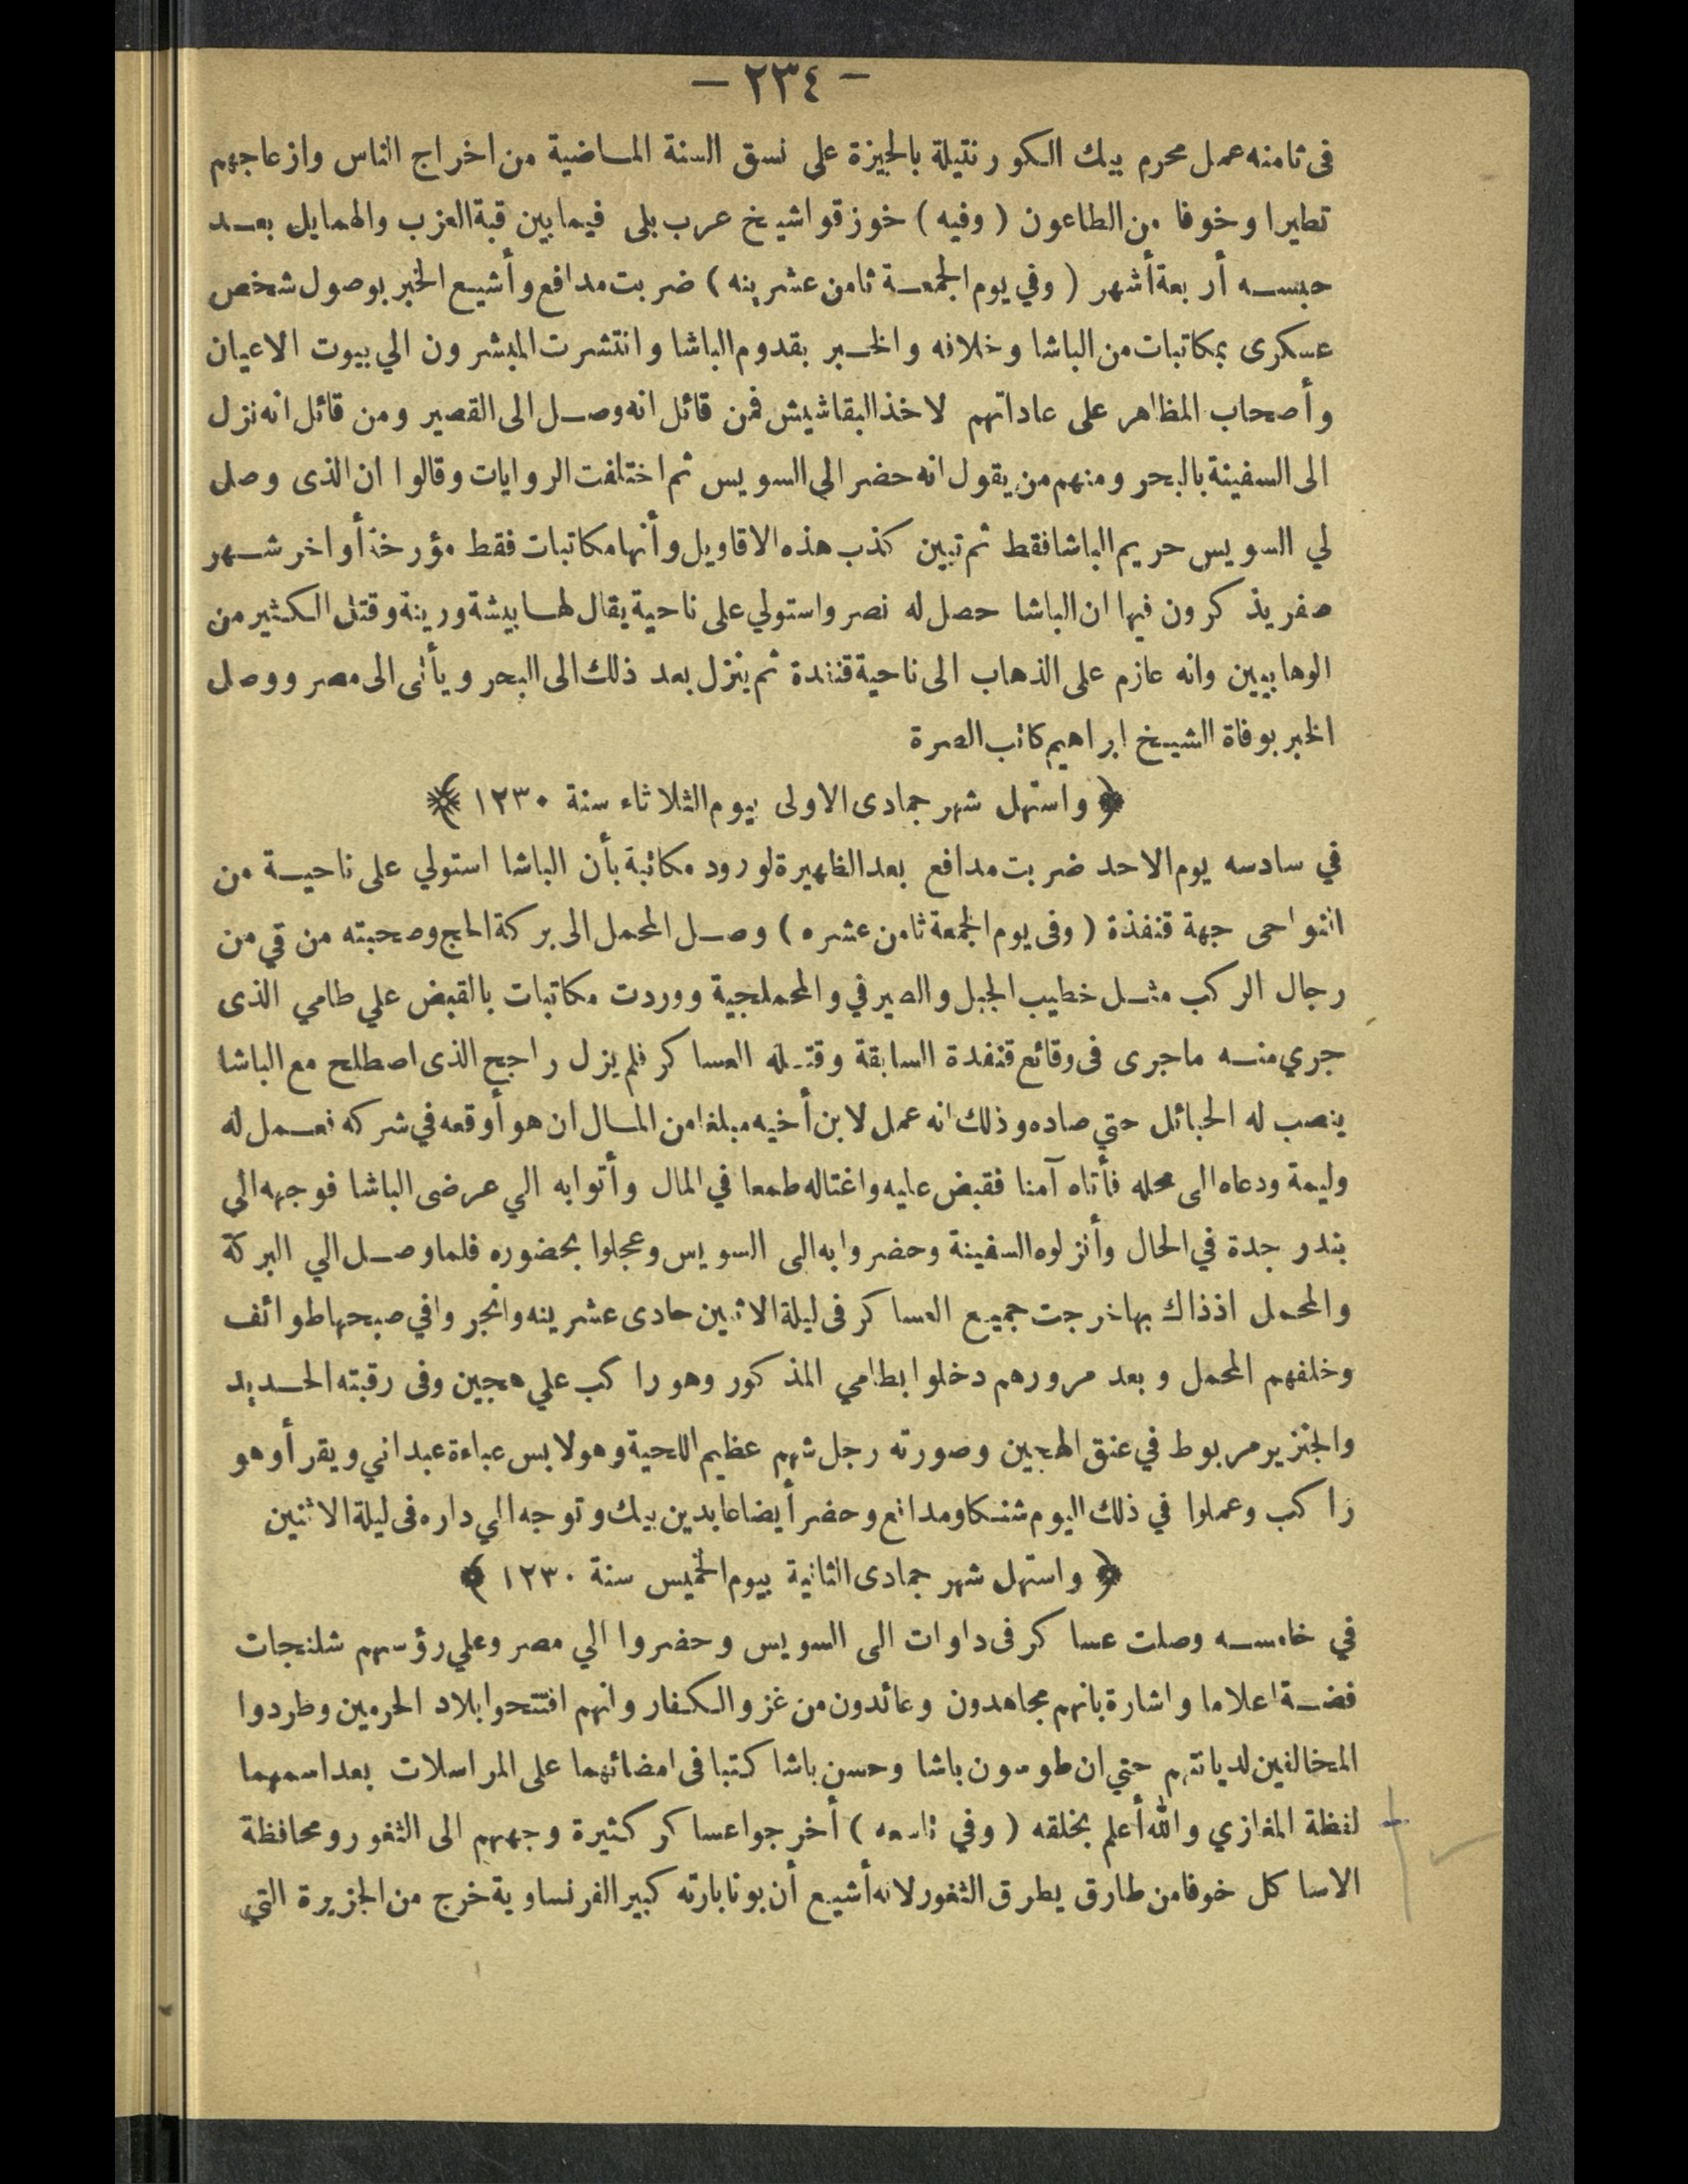 – ٢٣٤ –
فى ثامنه عمل محرم بيك الكورنتيلة بالجيزة على نسق السنة الماضية من اخراج الناس وازعاجهم
تطيرا وخوفا من الطاعون ( وفيه ) خوزقوا شيخ عرب بلى فيما بين قبة العزب والهمايل بعد
حبسه أربعة أشهر ( وفي يوم الجمعة ثامن عشرينه ) ضربت مدافع وأشيع الخبر بوصول شخص
عسكرى بمكاتبات من الباشا وخلافه والخبر بقدوم الباشا وانتشرت المبشرون الي بيوت الاعيان
وأصحاب المظاهر على عاداتهم لاخذ البقاشيش فمن قائل انه وصل الى القصير ومن قائل انه نزل
الى السفينة بالبحر ومنهم من يقول انه حضر الي السويس ثم اختلفت الروايات وقالوا ان الذى وصل
لي السويس حريم الباشا فقط ثم تبين كذب هذه الاقاويل وأنها مكاتبات فقط مؤرخة أواخر شهر
صفر يذكرون فيها ان الباشا حصل له نصر واستولي على ناحية يقال لها بيشة ورينة وقتل الكثير من
الوهابيين وانه عازم على الذهاب الى ناحية قنفدة ثم ينزل بعد ذلك الى البحر ويأتى الى مصر ووصل
الخبر بوفاة الشيخ ابراهيم كاتب الصرة
﴿ واستهل شهر جمادى الاولى بيوم الثلاثاء سنة ١٢٣٠ ﴾
في سادسه يوم الاحد ضربت مدافع بعد الظهيرة لورود مكاتبة بأن الباشا استولي على ناحية من
النواحى جهة قنفذة ( وفى يوم الجمعة ثامن عشره ) وصل المحمل الى بركة الحج وصحبته من قي من
رجال الركب مثل خطيب الجبل والصيرفي والمحملجية ووردت مكاتبات بالقبض علي طامي الذى
جري منه ماجرى فى وقائع قنفدة السابقة وقتله العساكر فلم يزل راجح الذى اصطلح مع الباشا
ينصب له الحبائل حتي صاده وذلك انه عمل لابن أخيه مبلغا من المال ان هو أوقعه في شركه فعمل له
وليمة ودعاه الى محله فأتاه آمنا فقبض عليه واغتاله طمعا في المال وأتوا به الي عرضى الباشا فوجهه الي
بندر جدة في الحال وأنزلوه السفينة وحضروا به الى السويس وعجلوا بحضوره فلما وصل الي البركة
والمحمل اذذاك بها خرجت جميع العساكر فى ليلة الاثنين حادى عشرينه وانجروا في صبحها طوائف
وخلفهم المحمل وبعد مرورهم دخلوا بطامي المذكور وهو راكب علي هجين وفى رقبته الحديد
والجنزير مربوط في عنق الهجين وصورته رجل شهم عظيم اللحية وهو لابس عباءة عبداني ويقرأ وهو
راكب وعملوا في ذلك اليوم شنكا ومدافع وحضر أيضا عابدين بيك وتوجه الي داره فى ليلة الاثنين
﴿ واستهل شهر جمادى الثانية بيوم الخميس سنة ١٢٣٠ ﴾
في خامسه وصلت عساكر فى داوات الى السويس وحضروا الي مصر وعلي رؤسهم شلنجات
فضة اعلاما واشارة بانهم مجاهدون وعائدون من غزو الكفار وانهم افتتحوا بلاد الحرمين وطردوا
المخالفين لديانتهم حتي ان طوسون باشا وحسن باشا كتبا فى امضائهما على المراسلات بعد اسمهما
لفظة المغازي والله أعلم بخلقه ( وفي تاسعه ) أخرجوا عساكر كثيرة وجههم الى الثغور ومحافظة
الاساكل خوفا من طارق يطرق الثغور لانه أشيع أن بونابارته كبير الفرنساوية خرج من الجزيرة التي